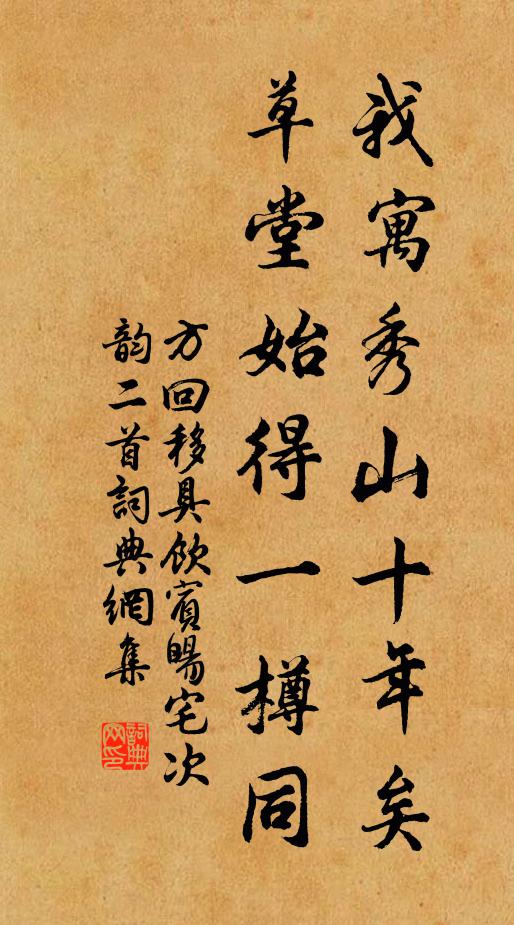 我寓秀山十年矣
草堂始得一樽同
方回移具飲賓暘宅次
韵二首詞典網集
詞典網印